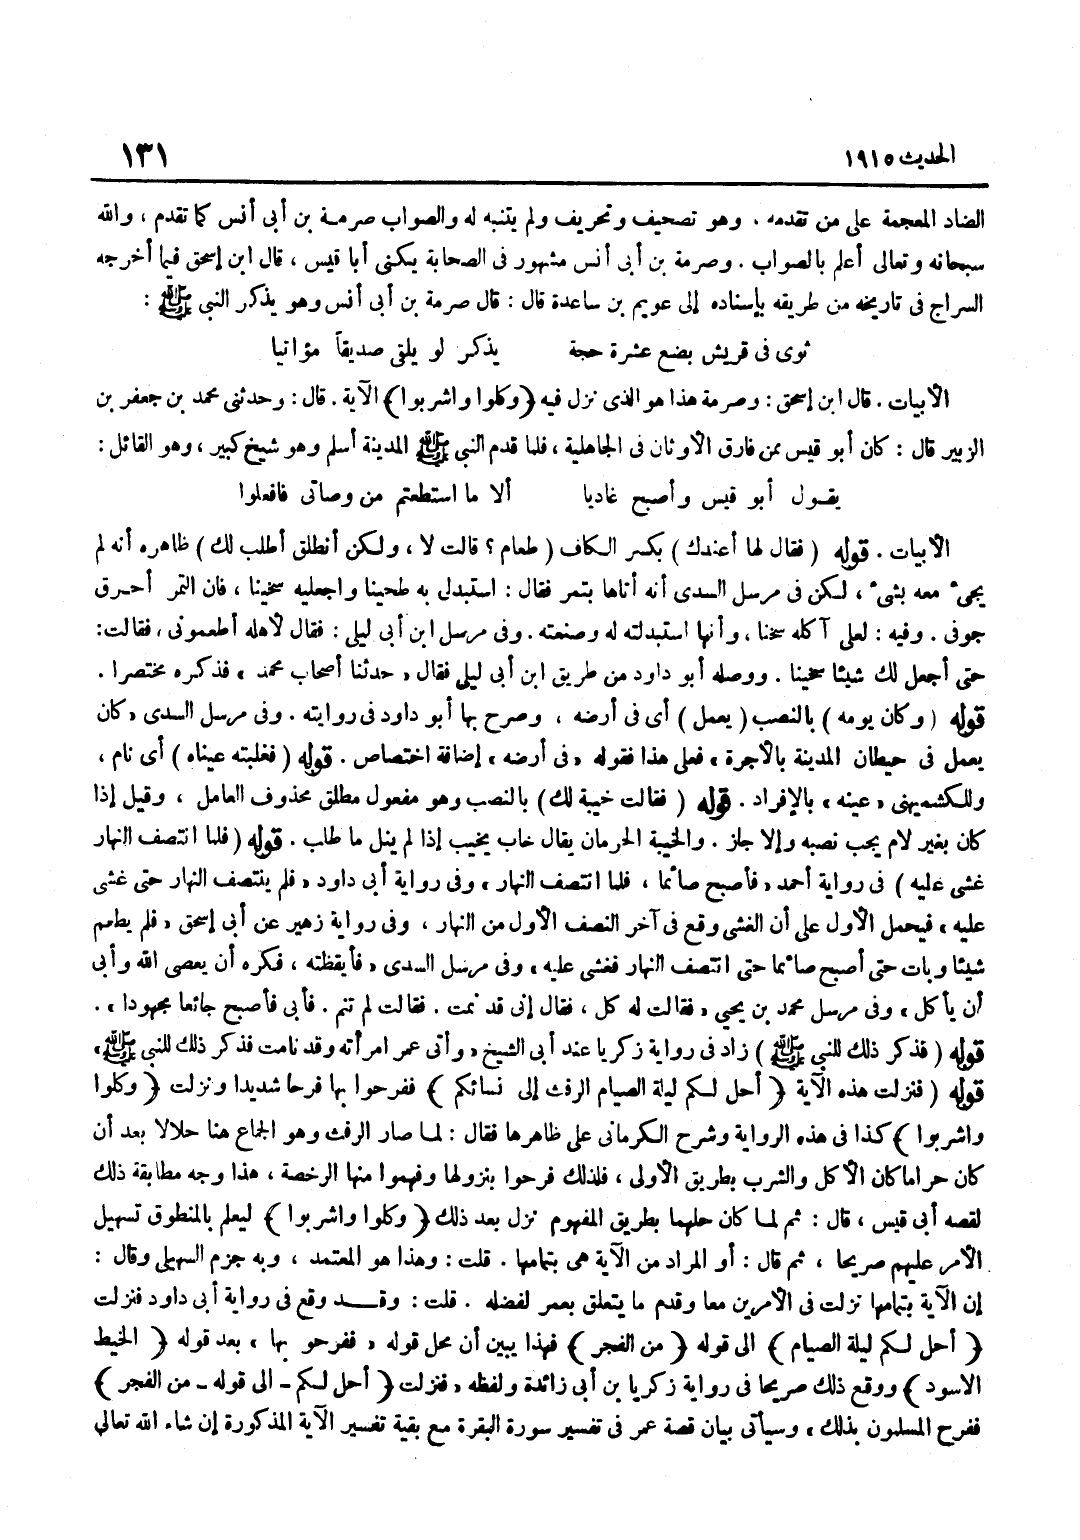 الحديث ١٩١٥ ١٣١
الضاد المعجمة على من تقدمه . وهو تصحيف وتحريف ولم يتنبه له والصواب صرمة بن أبى أنس كما تقدم ، والله
سبحانه وتعالى أعلم بالصواب . وصرمة بن أبى أنس مشهور فى الصحابة يكنى أبا قيس ، قال ابن إسحق فيما أخرجه
السراج فى تاريخه من طريقه بإسناده إلى عويم بن ساعدة قال : قال صرمة بن أبى أنس وهو يذكر النبى ﷺ :
ثوى فى قريش بضع عشرة حجة يذكر لو يلقى صديقاً مؤاتيا
الأبيات . قال ابن إسحق : وصرمة هذا هو الذى نزل فيه ﴿وكلوا واشربوا﴾ الآية . قال : وحدثنى محمد بن جعفر بن
الزبير قال : كان أبو قيس ممن فارق الأوثان فى الجاهلية ، فلما قدم النبى ﷺ المدينة أسلم وهو شيخ كبير ، وهو القائل :
يقول أبو قيس وأصبح غاديا ألا ما استطعتم من وصاتى فافعلوا
الأبيات . قوله ( فقال لها أعندك ) بكسر الكاف ( طعام ؟ قالت لا ، ولكن أنطلق أطلب لك ) ظاهره أنه لم
يجىء معه بشىء ، لكن فى مرسل السدى أنه أتاها بتمر فقال : استبدلى به طحينا واجعليه سخينا ، فان التمر أحرق
جوفى . وفيه : لعلى آكله سخنا ، وأنها استبدلته له وصنعته . وفى مرسل ابن أبى ليلى : فقال لأهله أطعمونى ، فقالت :
حتى أجعل لك شيئا سخينا . ووصله أبو داود من طريق ابن أبى ليلى فقال « حدثنا أصحاب محمد » فذكره مختصرا .
قوله ( وكان يومه ) بالنصب ( يعمل ) أى فى أرضه ، وصرح بها أبو داود فى روايته . وفى مرسل السدى « كان
يعمل فى حيطان المدينة بالأجرة » فعلى هذا فقوله « فى أرضه » إضافة اختصاص . قوله ( فغلبته عيناه ) أى نام ،
وللكشميهنى « عينه » بالإفراد . قوله ( فقالت خيبة لك ) بالنصب وهو مفعول مطلق محذوف العامل ، وقيل إذا
كان بغير لام يجب نصبه وإلا جاز . والخيبة الحرمان يقال خاب يخيب إذا لم ينل ما طلب . قوله ( فلما انتصف النهار
غشى عليه ) فى رواية أحمد « فأصبح صائما ، فلما انتصف النهار » وفى رواية أبى داود « فلم ينتصف النهار حتى غشى
عليه » فيحمل الأول على أن الغشى وقع فى آخر النصف الأول من النهار ، وفى رواية زهير عن أبى إسحق « فلم يطعم
شيئا وبات حتى أصبح صائما حتى انتصف النهار فغشى عليه » وفى مرسل السدى « فأيقظته ، فكره أن يعصى الله وأبى
أن يأكل » وفى مرسل محمد بن يحيى « فقالت له كل ، فقال إنى قد نمت . فقالت لم تنم . فأبى فأصبح جائعا مجهودا » .
قوله ( فذكر ذلك للنبى ﷺ ) زاد فى رواية زكريا عند أبى الشيخ « وأتى عمر امرأته وقد نامت فذكر ذلك للنبى ﷺ »
قوله ( فنزلت هذه الآية ﴿ أحل لكم ليلة الصيام الرفث إلى نسائكم ﴾ ففرحوا بها فرحا شديدا ونزلت ﴿ وكلوا
واشربوا ﴾ كذا فى هذه الرواية وشرح الكرمانى على ظاهرها فقال : لما صار الرفث وهو الجماع هنا حلالا بعد أن
كان حراما كان الأكل والشرب بطريق الأولى ، فلذلك فرحوا بنزولها وفهموا منها الرخصة ، هذا وجه مطابقة ذلك
لقصه أبى قيس ، قال : ثم لما كان حلهما بطريق المفهوم نزل بعد ذلك ﴿ وكلوا واشربوا ﴾ ليعلم بالمنطوق تسهيل
الأمر عليهم صريحا ، ثم قال : أو المراد من الآية هى بتمامها . قلت : وهذا هو المعتمد ، وبه جزم السهيلى وقال :
إن الآية بتمامها نزلت فى الأمرين معا وقدم ما يتعلق بعمر لفضله . قلت : وقد وقع فى رواية أبى داود فنزلت
﴿ أحل لكم ليلة الصيام ﴾ الى قوله ﴿ من الفجر ﴾ فهذا يبين أن محل قوله « ففرحو بها » بعد قوله ﴿ الخيط
الاسود ﴾ ووقع ذلك صريحا فى رواية زكريا بن أبى زائدة ولفظه « فنزلت ﴿ أحل لكم - الى قوله - من الفجر ﴾
ففرح المسلمون بذلك » وسيأتى بيان قصة عمر فى تفسير سورة البقرة مع بقية تفسير الآية المذكورة إن شاء الله تعالى